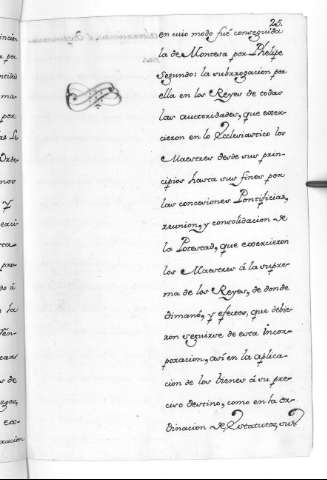 25.
en cuio modo fué conseguida
la de Montesa por Phelipe
Segundo: la subrrogacion por
ella en los Reyes de todas
las auctoridades, que exer-
cieron en lo Ecclesiastico los
Maestres desde sus prin-
cipios hasta sus fines por
las concesiones Pontificias,
reunion, y consolidacion de
la Potestad, que exercieron
los Maestres á la supre-
ma de los Reyes, de donde
dimanó, y efectos, que debie-
ron seguirse de esta Incor-
poracion, asi en la aplica-
cion de los bienes á su pre-
ciso destino, como en la or-
dinacion de Estatutos, sus